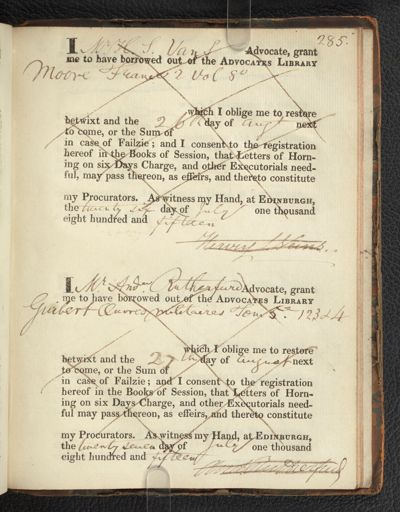 285.
I Mr H. S. Vans Advocate, grant
me to have borrowed out of the ADVOCATES LIBRARY
Moore France 2 Vol 8o
which I oblige me to restore
betwixt and the 26th day of Augt next
to come, or the Sum of
in case of Failzie; and I consent to the registration
hereof in the Books of Session, that Letters of Horn-
ing on six Days Charge, and other Executorials need-
ful, may pass thereon, as effeirs, and thereto constitute
my Procurators. As witness my Hand, at EDINBURGH,
the twenty six day of July one thousand
eight hundred and fifteen
I Mr Andw Rutherfurd Advocate, grant
me to have borrowed out of the ADVOCATES LIBRARY
Guibert Œuvres militaires Tom 5. 1 2 3 & 4
which I oblige me to restore
betwixt and the 27th day of august next
to come, or the Sum of
in case of Failzie; and I consent to the registration
hereof in the Books of Session, that Letters of Horn-
ing on six Days Charge, and other Executorials need-
ful may pass thereon, as effeirs, and thereto constitute
my Procurators. As witness my Hand, at EDINBURGH,
the twenty seven day of July one thousand
eight hundred and fifteen